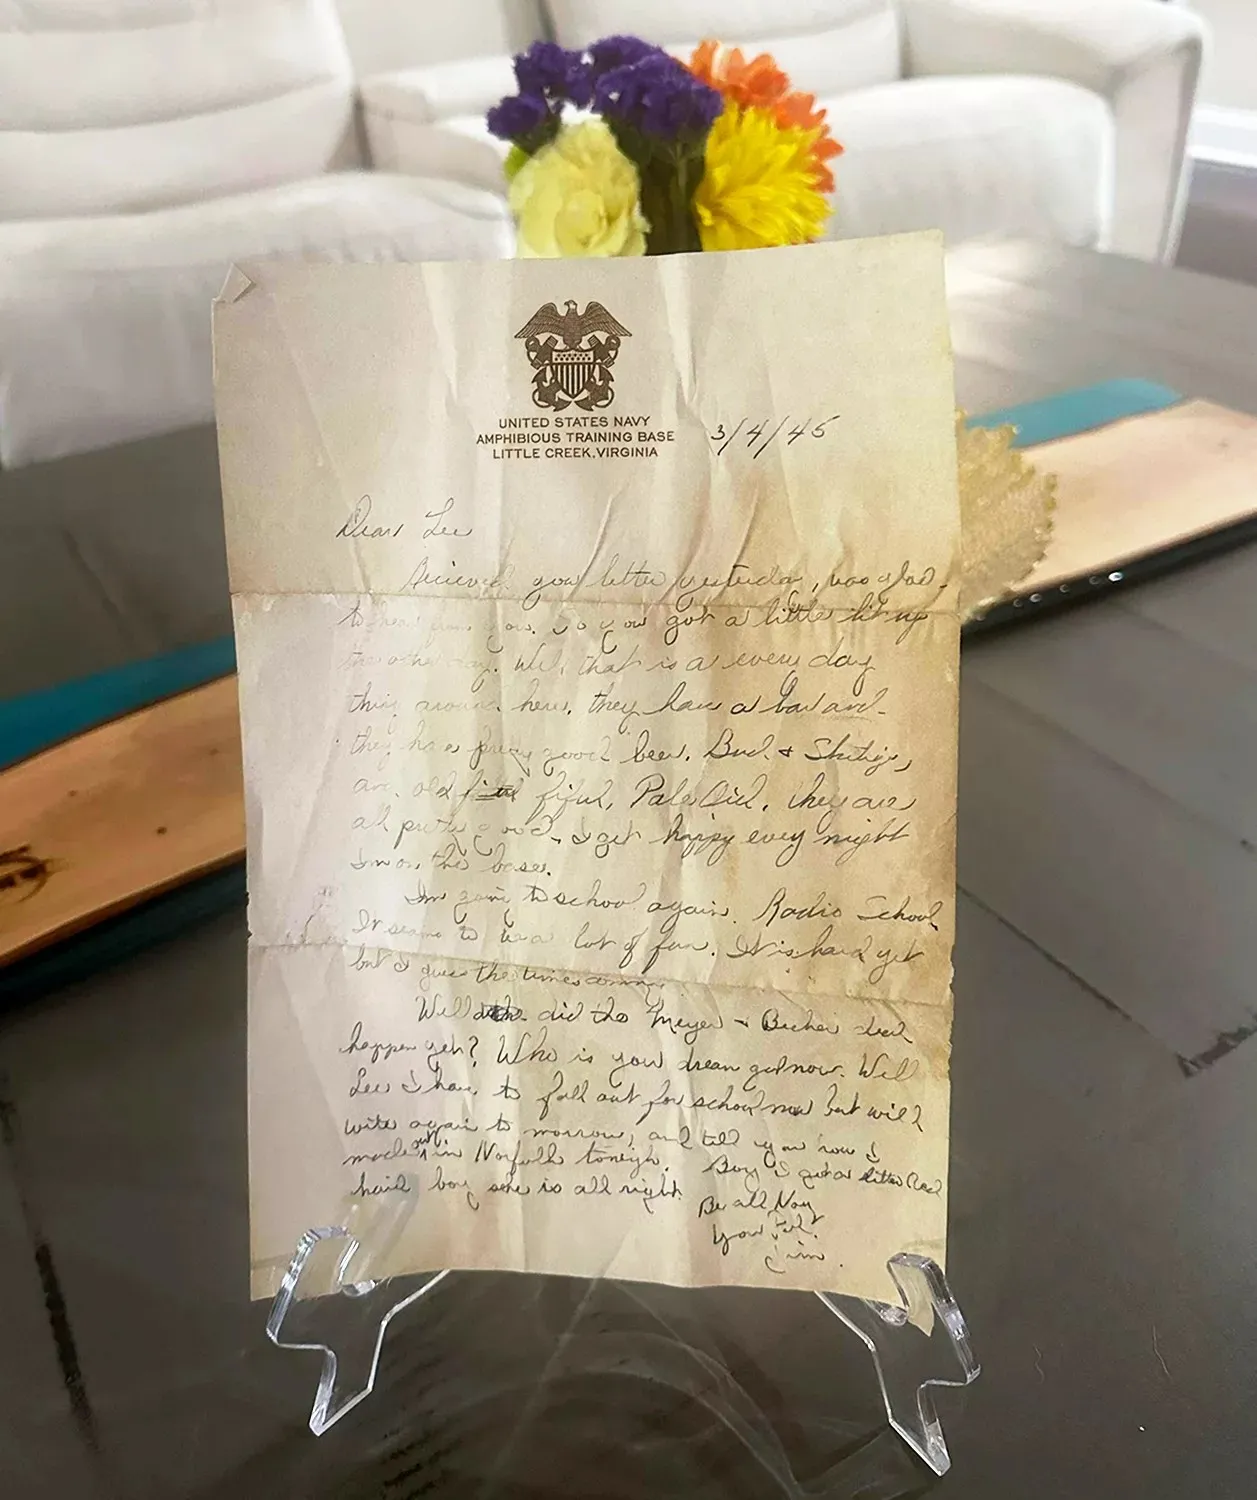 UNITED STATES NAVY
AMPHIBIOUS TRAINING BASE
LITTLE CREEK, VIRGINIA
3/4/45
Dear Lee
Recieved your letter yesterday, was glad
to hear from you. So you got a little lit up
the other day. Well that is a every day
thing around here. they have a bar and
they have pretty good beer. Bud. &
an. old Pale they are
all pretty good. I get happy every night
Im on the base.
Im going to school again. Radio School
It seams to be a lot of fun. It is hard yet
but I guess the times coming
Well did the Meyer - Becher deal
happen yet? Who is your dream gal now. Well
Lee I have to fall out for school now but will
write again to morrow, and tell you how I
made out in Norfolk tonight. Boy I got a little Red
haid boy she is all right.
Be all Navy
your
Jim.